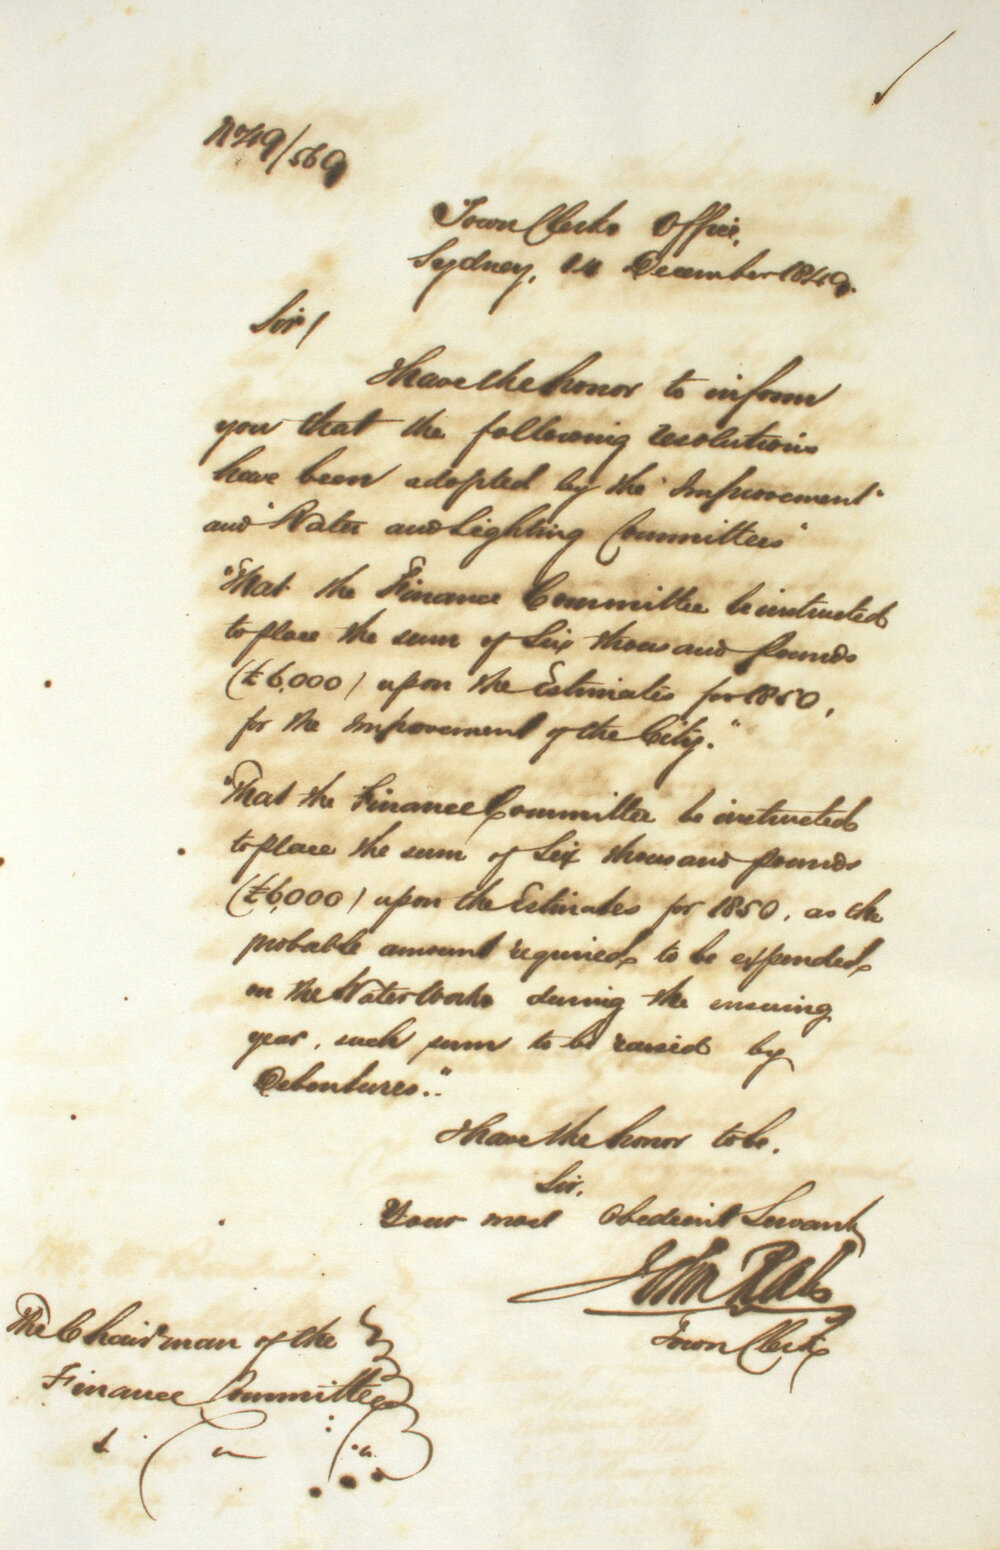 No 49/569
Town Clerks Office,
Sydney, 14 December 1849.
Sir /
I have the honor to inform
you that the following resolutions
have been adopted by the "Improvement"
and "Water and Lighting Committees"
"That the Finance Committee be instructed
to place the sum of Six thousand pounds
(£6,000) upon the Estimates for 1850,
for the Improvement of the City."
"That the Finance Committee be instructed
to place the sum of Six thousand pounds
(£6,000) upon the Estimates for 1850, as the
probable amount required to be expended
on the Water Works during the ensuing
year, such sum to be raised by
Debentures."
I have the honor to be,
Sir,
Your most Obedient Servant
John Rae
Town Clerk
The Chairman of the
Finance Committee